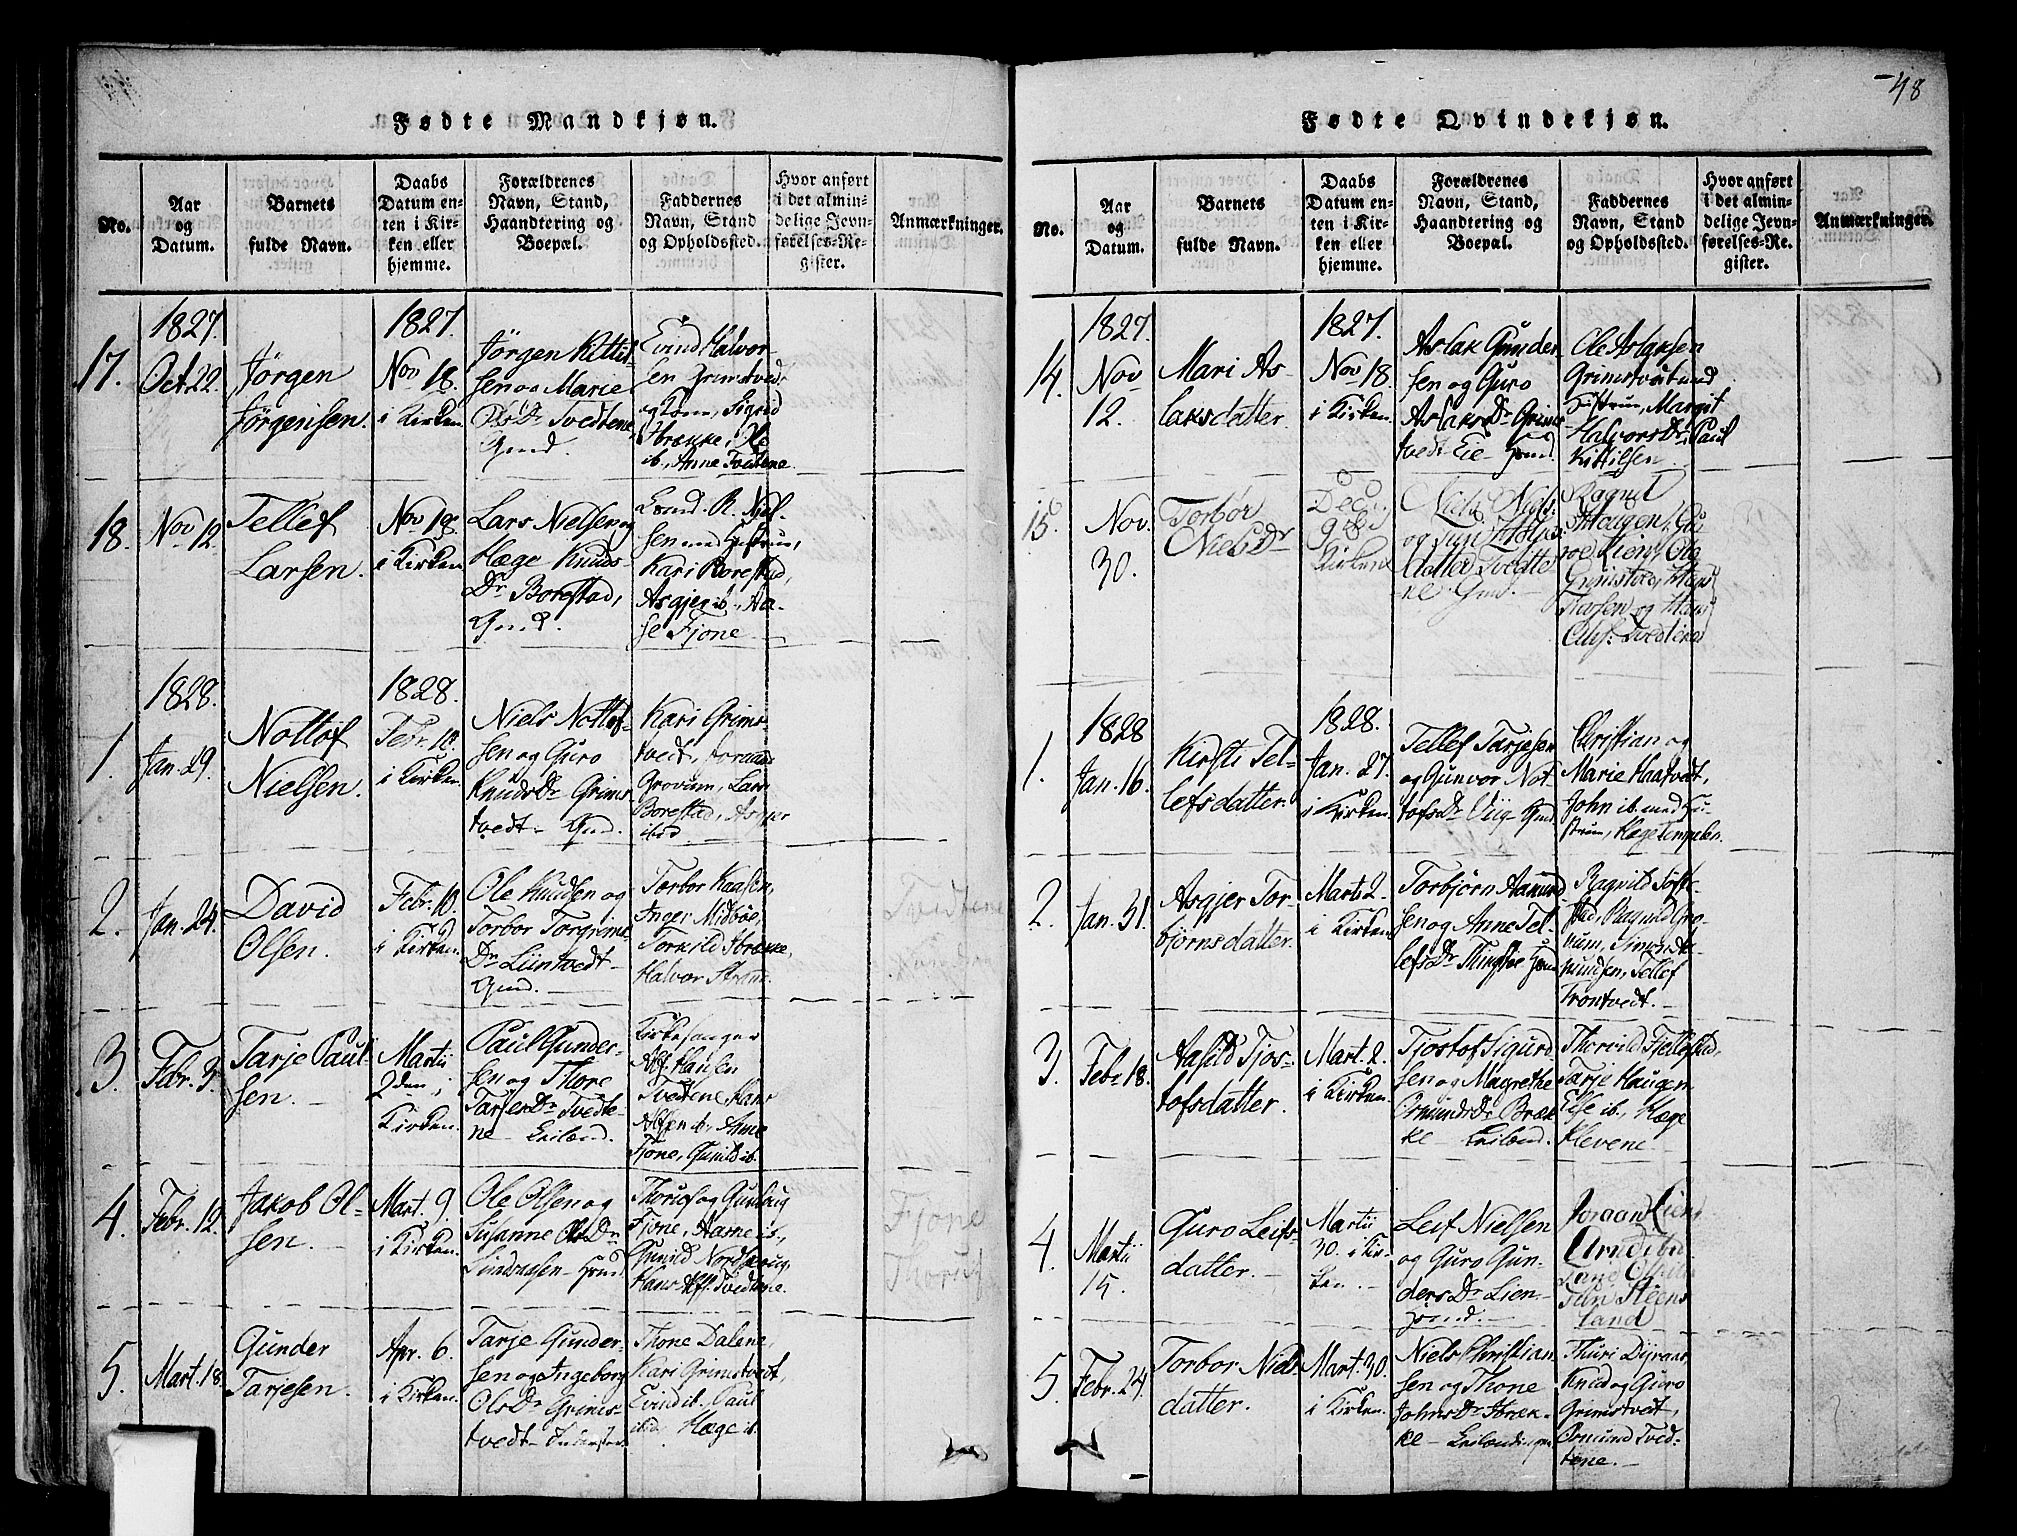 48
Fødte Mandkjøn.
No.
Aar
og
Datum.
Barnets
fulde Navn.
Daabs
Datum en-
ten i Kir-
ken eller
hjemme.
Forældrenes
Navn, Stand,
Haandtering og
Boepæl.
Faddernes
Navn, Stand
og Opholdssted.
Hvor anført
i det almin-
delige Jevn-
førelses-Re-
gister.
Anmærkninger.
17.
1827.
Oct. 22.
Jørgen
Jørgensen.
1827.
Nov 18.
i Kirken
Jørgen Kittil-
sen og Marie
OlsDr Tvedtene
Gmd.
Evind Halvor-
sen Grimstved
og Kone, Sigrid
Strække, Ole
ib., Anne Tvedtene.
18.
Nov 12.
Tellef
Larsen.
Nov 18.
i Kirken
Lars Nielsen og
Hæge Knuds-
Dr Borestad,
Gmd.
Kari Borestad,
Asgjer ib., Aa-
se Fjone
1828.
1.
Jan. 29.
Nottof
Nielsen.
1828.
Febr. 10.
i Kirken
Niels Nottof-
sen og Guro
KnudsDr Grims-
tvedt - Gmd.
Kari Grims
tvedt, Joraand
Grovum, Lars
Borestad, Asgjer
ibid
2.
Jan. 24.
David
Olsen.
Febr. 10.
i Kirken.
Ole Knudsen og
Torbor Torgrims-
Dr Lüntvedt -
Gmd.
Torbor Kaasen,
Inger Midbøe,
Torkild Strække,
Halvor Stram.
3.
Febr. 3.
Tarje Paul-
sen.
Martii
2den i
Kirken.
Paul Gunder-
sen og Thore
TarjesDr Tvedte-
ne - Leilænd.
Kirkesanger
Alf Hansen
Tvedtene, Hans
Alfsen ib., Anne
Fjone, Gunild ib.
4.
Febr. 12.
Jakob Ol-
sen.
Mart. 9.
i Kirken.
Ole Olsen og
Susanne OlsDr
Hans Alfs. Tvedtene.
Fjone
5.
Mart. 18.
Gunder
Tarjesen.
Apr. 6.
i Kirken.
Tarje Gunder-
sen og Ingeborg
OlsDr Grims-
tvedt
Thone Dalene,
Kari Grimstvedt,
Evind ib. Paul
ibid, Hæge ib.
Fødte Qvindekjøn.
No.
Aar
og
Datum.
Barnets
fulde Navn.
Daabs
Datum en-
ten i Kir-
ken eller
hjemme.
Forældrenes
Navn, Stand,
Haandtering og
Boepæl.
Faddernes
Navn, Stand
og Opholdssted.
Hvor anført
i det almin-
delige Jevn-
førelses-Re-
gister.
Anmærkninger.
14.
1827.
Nov
12.
Mari As-
laksdatter.
1827.
Nov 18.
i Kirken.
Aslak Gunder-
sen og Guro
AslaksDr Grims-
tvedt Eie
Ole Aslaksen
Grimstvedt med
Hustrue, Margit
HalvorsDr, Paul
Kittilsen.
15.
Nov.
30.
Torbør
NielsDr
Dec
9 i
Kirken
Niels Niels
datter Tvedte
ne Gmd.
Ragnil
Haugen, Gu
roe Lien, Ole
Grimstved, Hans
og Hans
Alfs. Tvedtene
1.
1828
Jan. 16.
Kirsti Tel-
lefsdatter.
1828.
Jan. 27.
i Kirken.
Tellef Tarjesen
og Gunvor Not-
tofsDr Viig - Gmd
Christian og
Marie Haatvedt,
John ib. med Hu-
strue, Hæge Tempelen.
2.
Jan. 31.
Asgjer Tor-
bjørnsdatter.
Marts 2.
i Kirken
Torbjørn Aamund-
sen og Anne Tel-
lefsDr
num, Simon
mundsen, Tellef
Frontvedt.
3.
Febr 18.
Aasild Tjos-
tofsdatter.
Mart. 2.
i Kirken.
Tjostof Sigurd-
sen og Magrethe
OsmundsDr Bræk-
ke - Leilænd.
Thorvild Tjellestad,
Tarje Haugen
Else ib., Hæge
Klevene
4.
Martii
15.
Guro Leifs-
datter.
Martii
30. i Kir-
ken.
Leif Nielsen
og Guro Gun-
dersDr Lien -
Joraand Lien
Steens
land
5.
Febr. 24.
Torbor Niels-
datter.
Mart. 30.
i Kirken.
Niels Christian-
sen og Thone
JohnsDr Stræk-
ke - Leilændingen
Thuri Dijraas,
Knud og Guro
Grimstvedt,
Osmund Tved-
tene.